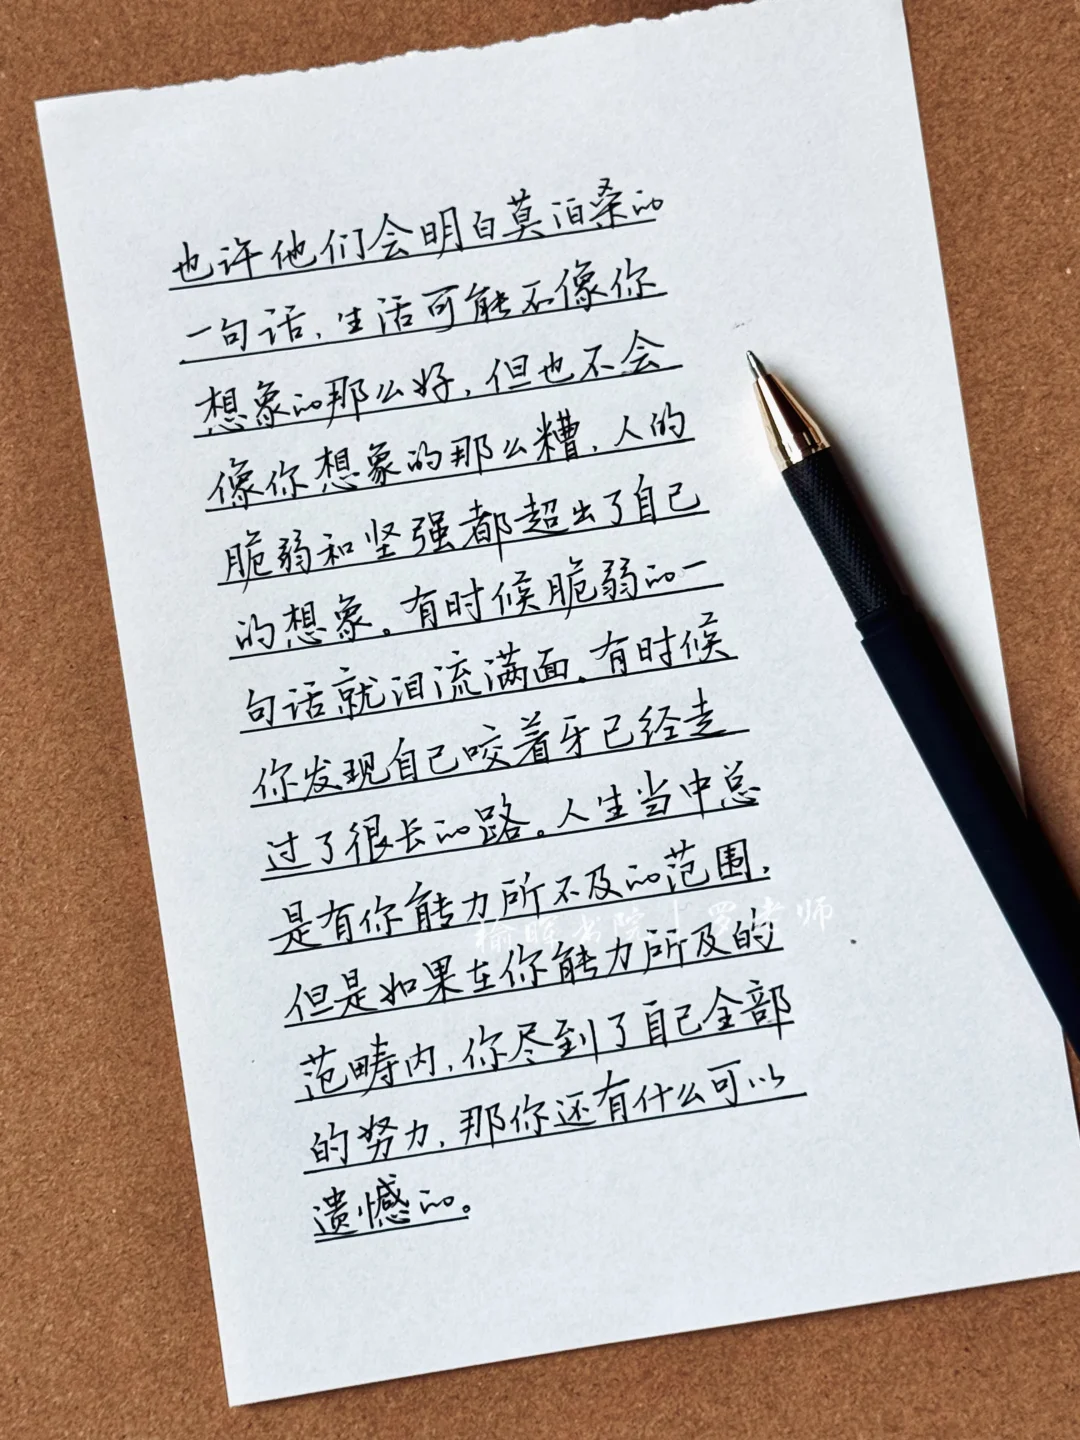 也许他们会明白莫泊桑的
一句话，生活可能不像你
想象的那么好，但也不会
像你想象的那么糟，人的
脆弱和坚强都超出了自己
的想象。有时候脆弱的一
句话就泪流满面，有时候
你发现自己咬着牙已经走
过了很长的路。人生当中总
是有你能力所不及的范围，
但是如果在你能力所及的
范畴内，你尽到了自己全部
的努力，那你还有什么可以
遗憾的。
榆晖书院｜罗老师